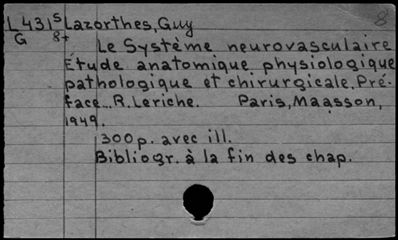 8
L431S Lazorthes, Guy
G 8+
Le Système neurovasculaire
Étude anatomique physiologique
pathologique et chirurgicale. Pré-
face... R. Leriche. Paris, Maasson,
1949.
300 p. avec ill.
Bibliogr. à la fin des chap.